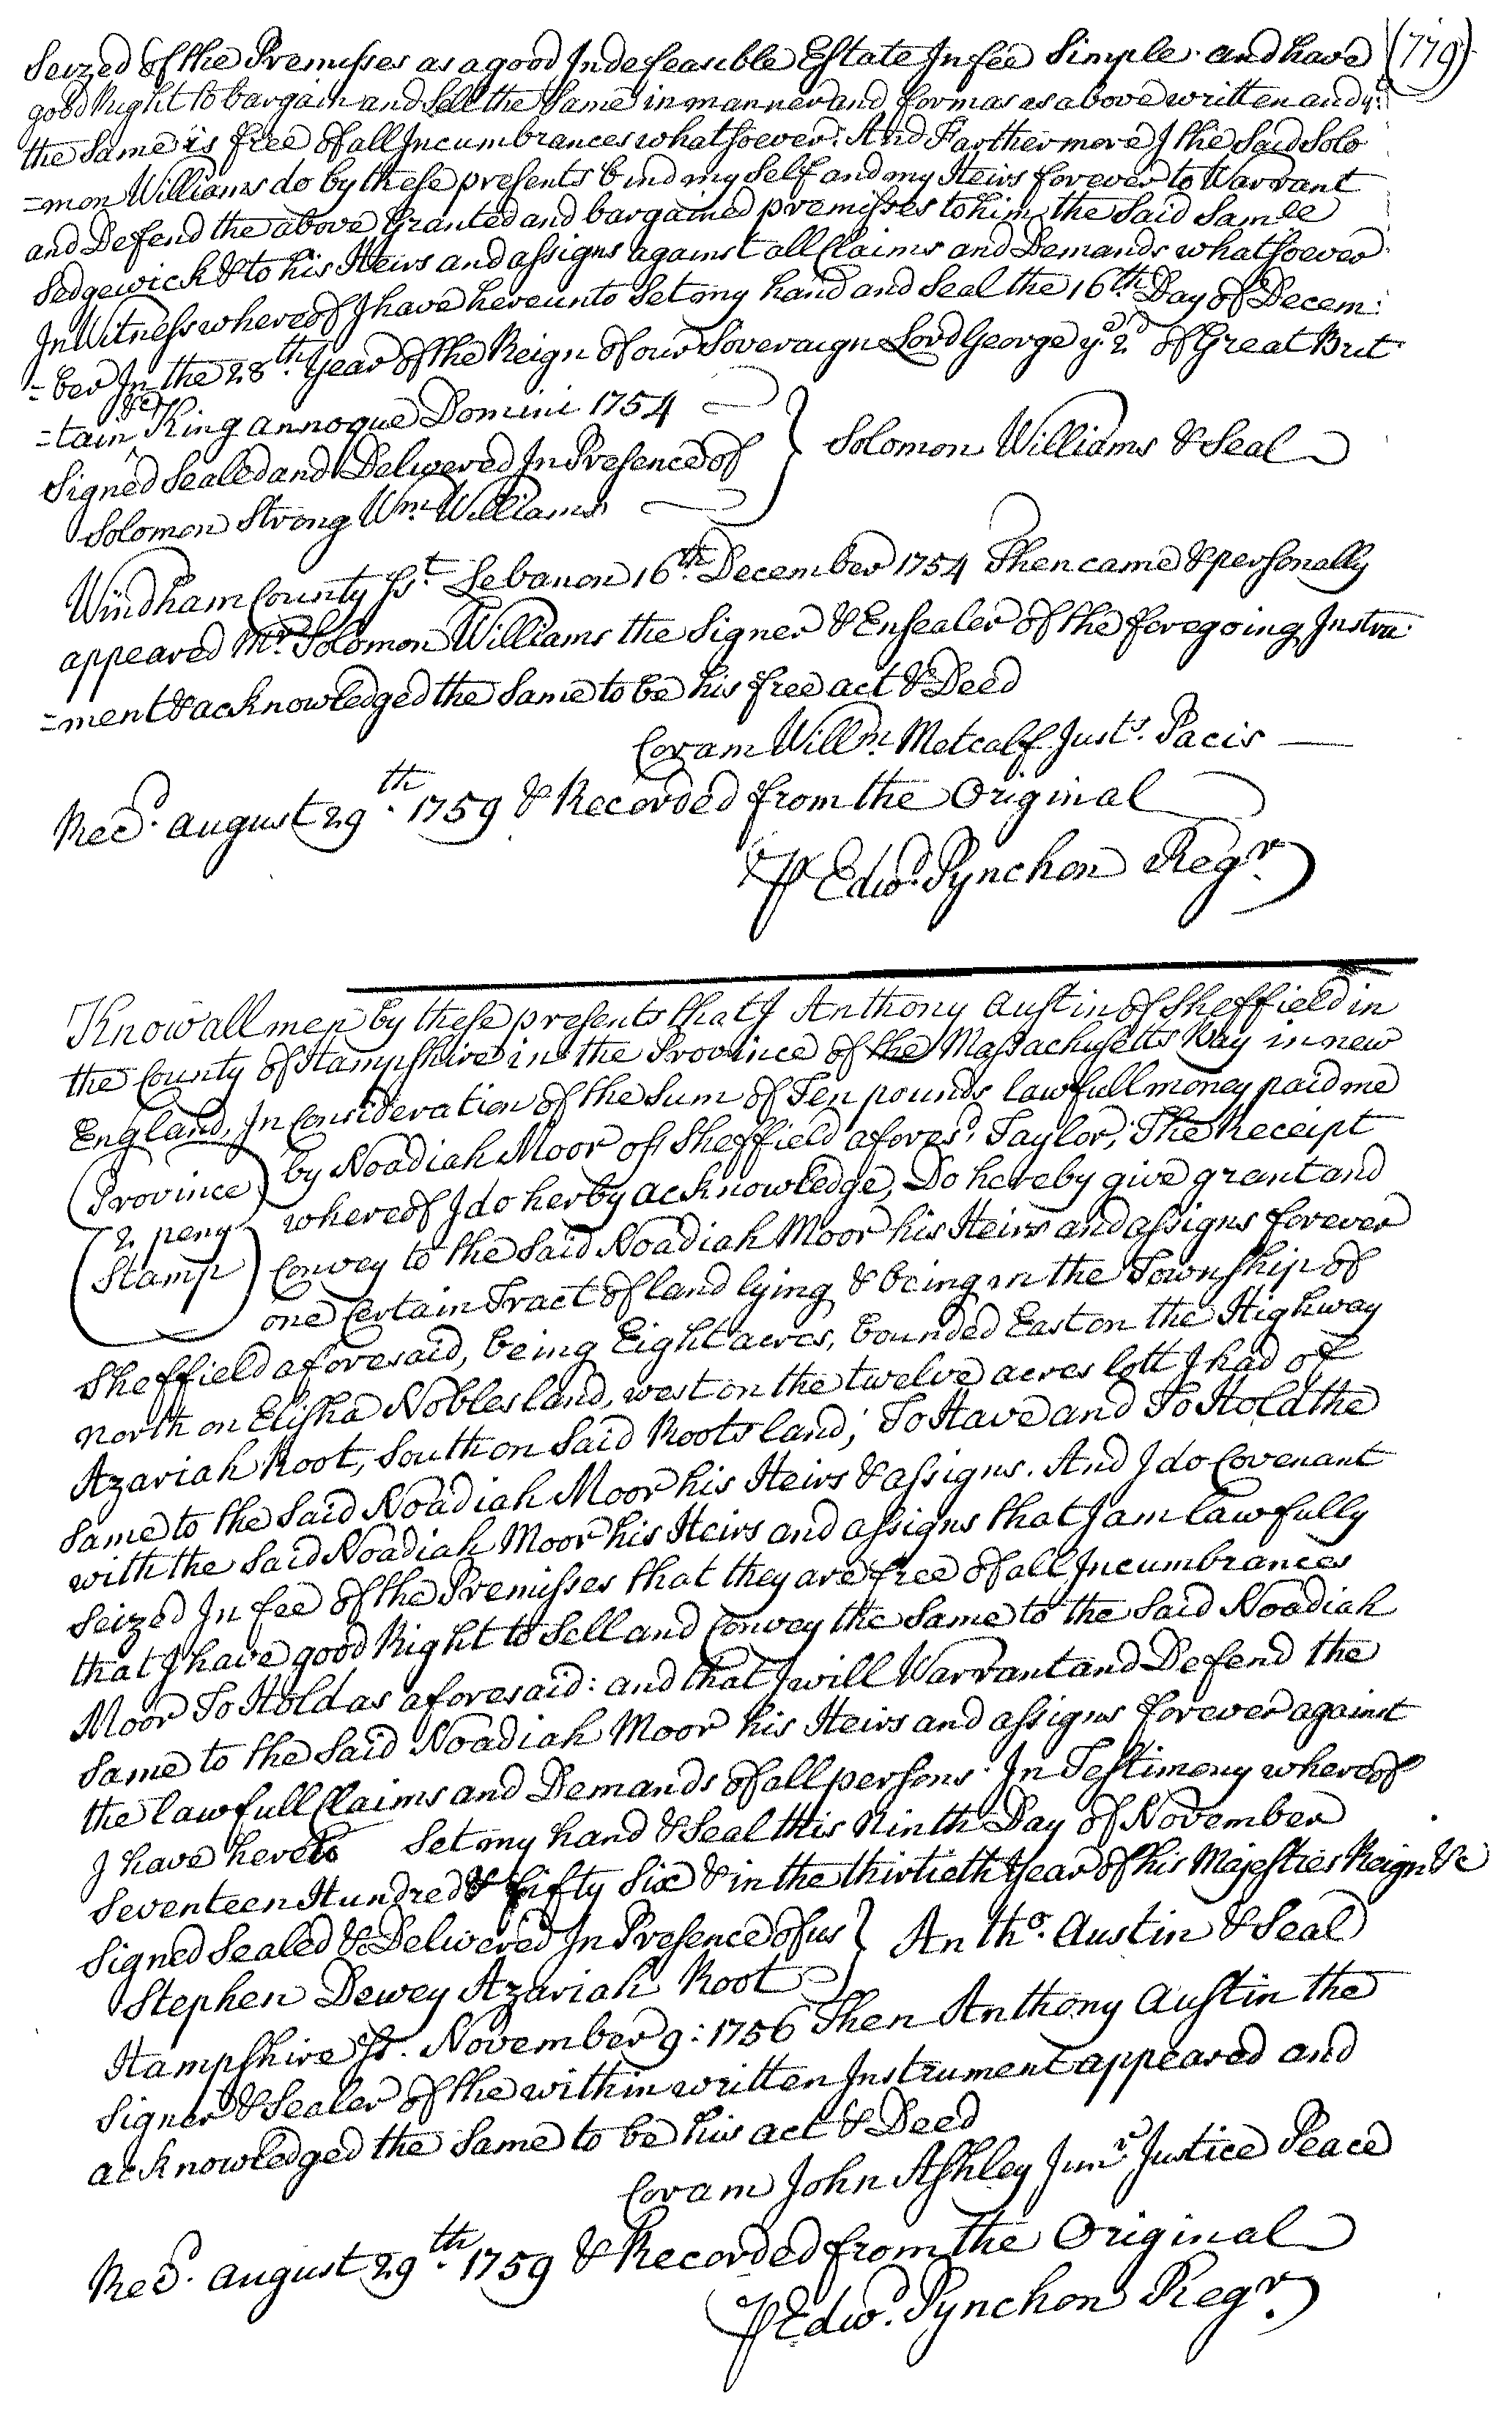 Seized of the Premisses as a good Indefeasible Estate In fee Simple and have (779)
good Right to bargain and Sell the Same in manner and form as is above written and yt
the Same is free of all Incumbrances whatsoever: And Farthermore I the Said Solo
=mon Williams do by these presents bind my Self and my Heirs forever to Warrant
and Defend the above Granted and bargained premisses to him the Said Samll
Sedgewick & to his Heirs and assigns against all Claims and Demands whatsoever
In Witness whereof I have hereunto Set my hand and Seal the 16th. Day of Decem:
=ber In the 28th. Year of the Reign of our Soveraign Lord George ye. 2d of Great Brit
=tain &c King annoque Domini 1754
Signed Sealed and Delivered In Presence of } Solomon Williams & Seal
Solomon Strong Wm. Williams
Windham County Ss.t Lebanon 16th. December 1754 Then came & personally
appeared Mr. Solomon Williams the Signer & Ensealer of the foregoing Instru
=ment & acknowledged the Same to be his free act & Deed
Coram Willm. Metcalf Justs. Pacis
Recd. august 29th. 1759 & Recorded from the Original
P Edwd. Pynchon Regr.
Know all men by these presents that I Anthony Austin of Sheffield in
the County of Hampshire in the Province of the Massachusetts Bay in new
England, In Consideration of the Sum of Ten pounds lawfull money paid me
(Province) by Noadiah Moor of Sheffield afores.d Taylor, The Receipt
2 peny whereof I do herby acknowledge, Do hereby give grant and
(Stamp) Convey to the Said Noadiah Moor his Heirs and assigns forever
one Certain Tract of land lying & being in the Township of
Sheffield aforesaid, being Eight acres, bounded East on the Highway
North on Elisha Nobles land, west on the twelve acres lott I had of
Azariah Root, South on Said Roots land; To Have and To Hold the
Same to the Said Noadiah Moor his Heirs & assigns. And I do Covenant
with the Said Noadiah Moor his Heirs and assigns that I am lawfully
Seized In fee of the Premisses that they are free of all Incumbrances
that I have good Right to Sell and Convey the Same to the Said Noadiah
Moor To Hold as aforesaid: and that I will Warrant and Defend the
Same to the Said Noadiah Moor his Heirs and assigns forever against
the lawfull Claims and Demands of all persons. In Testimony whereof
I have hereto Set my hand & Seal this Ninth Day of November
Seventeen Hundred & fifty Six & in the thirtieth Year of his Majesties Reign &c
Signed Sealed & Delivered In Presence of us } Antho. Austin & Seal
Stephen Dewey Azariah Root
Hampshire Ss. November 9: 1756 Then Anthony Austin the
Signer & Sealer of the within written Instrument appeared and
acknowledged the Same to be his act & Deed
Coram John Ashley Junr. Justice Peace
Recd. august 29th. 1759 & Recorded from the Original
P Edwd. Pynchon Regr.